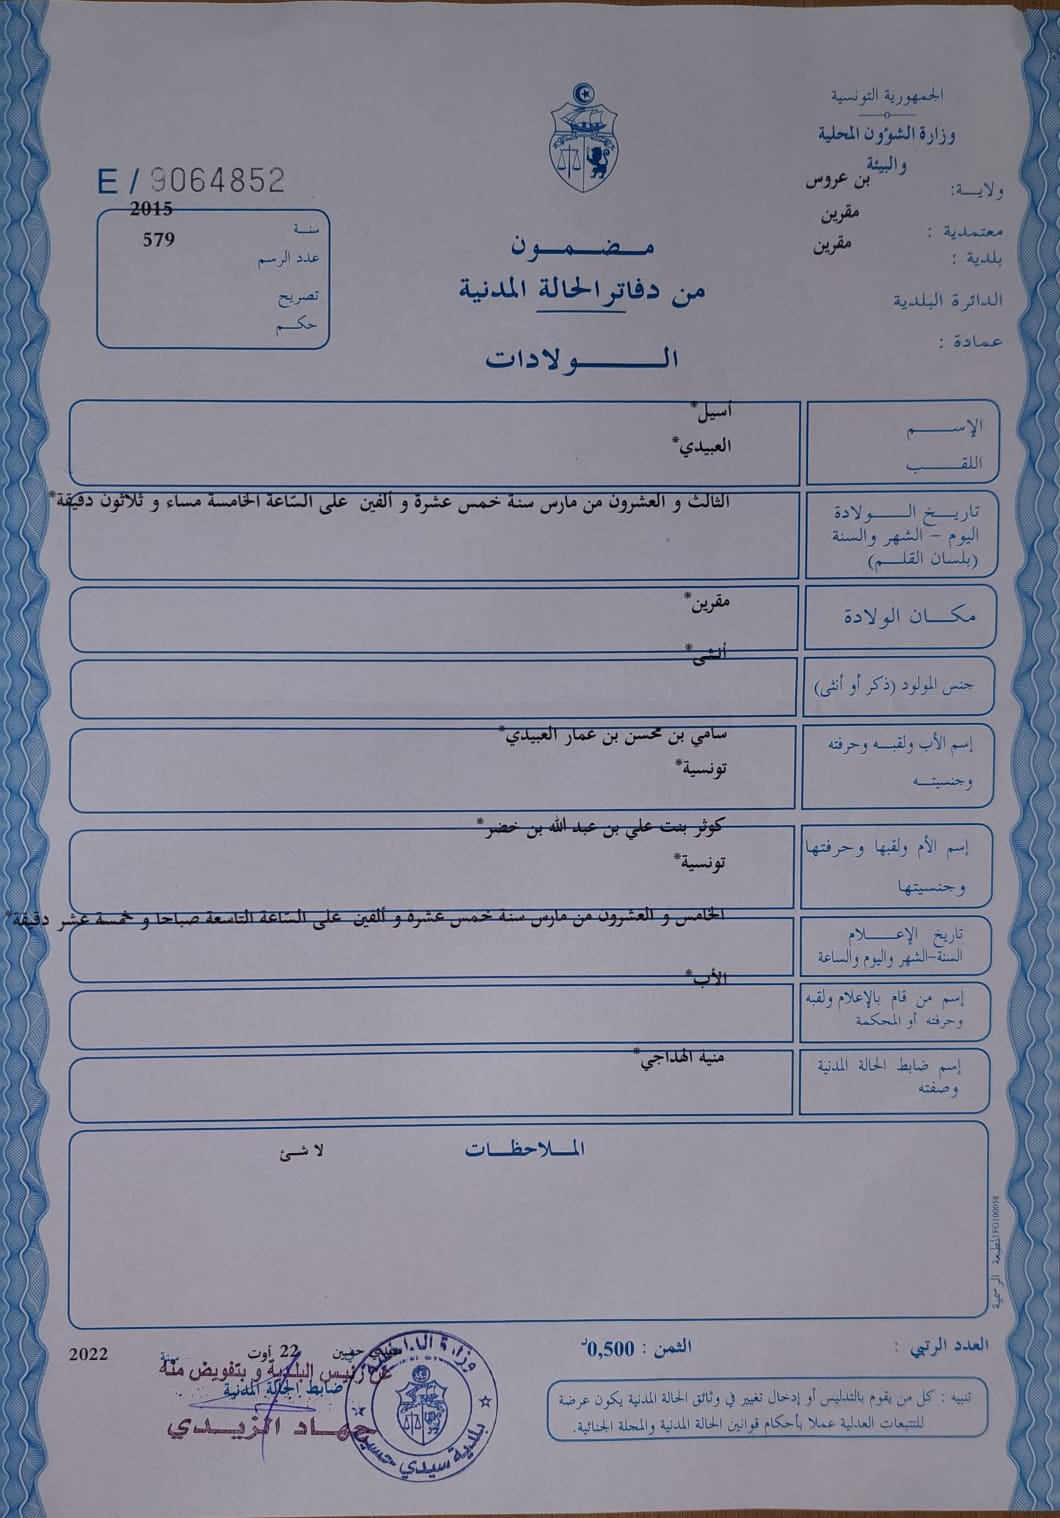 الجمهورية التونسية
وزارة الشؤون المحلية
والبيئة
ولايــة: بن عروس
معتمدية : مقرين
بلدية : مقرين
الدائرة البلدية
عمادة :
E / 9064852
سنــة 2015
عدد الرسم 579
تصريح
حكــم
مــضــمــــون
من دفاتر الحالة المدنية
الــــــولادات
الإســــــم أسيل*
اللقــــــب العبيدي*
تاريــخ الــــــولادة الثالث و العشرون من مارس سنة خمس عشرة و ألفين على الساعة الخامسة مساء و ثلاثون دقيقة*
اليوم – الشهر والسنة
(بلسان القلـــم)
مكــــان الولادة مقرين*
جنس المولود (ذكر أو أنثى) أنثى*
إسم الأب ولقبــه وحرفته سامي بن محسن بن عمار العبيدي*
وجنسيتــــه تونسية*
إسم الأم ولقبها وحرفتها كوثر بنت علي بن عبد الله بن خضر*
وجنسيتها تونسية*
تاريخ الإعـــــلام الخامس و العشرون من مارس سنة خمس عشرة و ألفين على الساعة التاسعة صباحا و خمسة عشر دقيقة*
السنة-الشهر واليوم والساعة
إسم من قام بالإعلام ولقبه الأب*
وحرفته أو المحكمة
إسم ضابط الحالة المدنية منية الهداجي*
وصفته
المــلاحظــات
لا شئ
المطبعة الرسمية IFG100058
العدد الرتبي :
الثمن : 0,500د
تنبيه : كل من يقوم بالتدليس أو إدخال تغيير في وثائق الحالة المدنية يكون عرضة
للتتبعات العدلية عملا بأحكام قوانين الحالة المدنية والمجلة الجنائية.
سيدي حسين 22 أوت سنة 2022
عن رئيس البلدية و بتفويض منه
ضابط الحالة المدنية
جهــاد الزيــدي
وزارة الداخلية
بلدية سيدي حسين